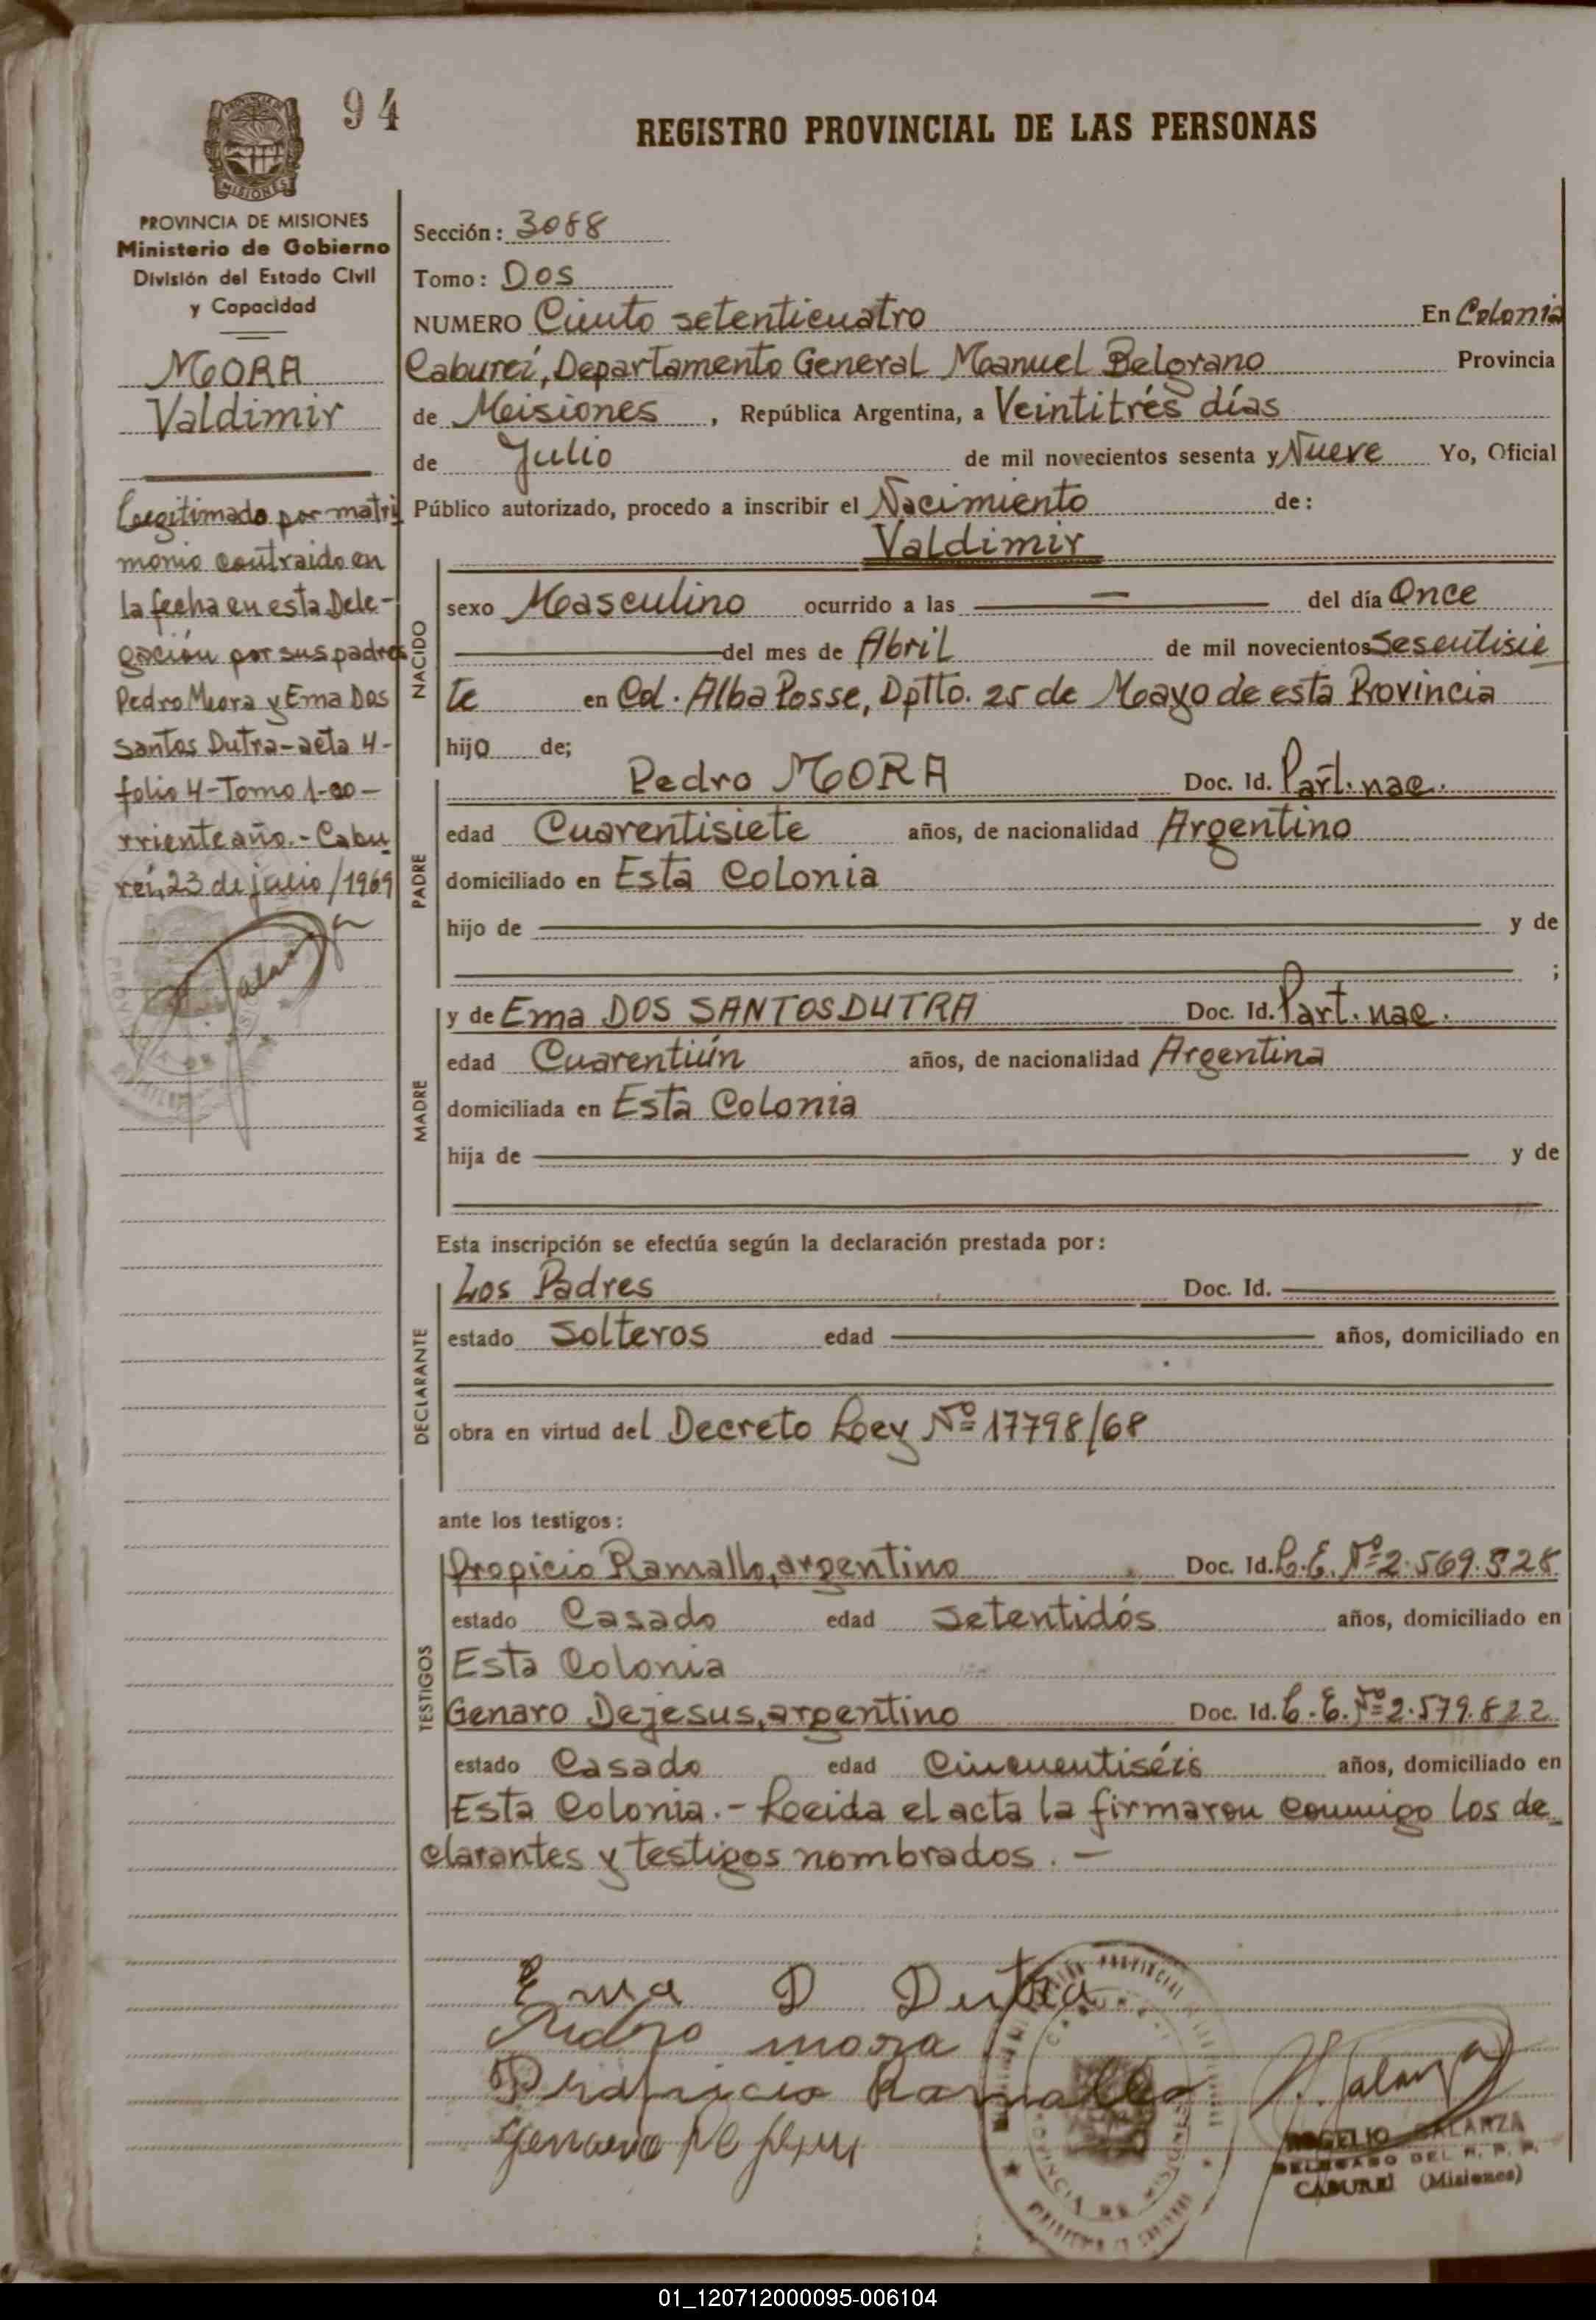 94
REGISTRO PROVINCIAL DE LAS PERSONAS
MISIONES
PROVINCIA DE MISIONES
Ministerio de Gobierno
División del Estado Civil
y Capacidad
MORA
Valdimir
Legitimado por matri
monio contraido en
la fecha en esta Dele-
gación por sus padres
Pedro Mora y Ema Dos
Santos Dutra - acta 4-
folio 4 - Tomo 1 - co-
rriente año. - Cabu
reí, 23 de julio / 1969
Sección: 3088
Tomo: Dos
NUMERO Ciento setenticuatro En Colonia
Caburei, Departamento General Manuel Belgrano Provincia
de Misiones, República Argentina, a Veintitrés días
de Julio de mil novecientos sesenta y Nueve Yo, Oficial
Público autorizado, procedo a inscribir el Nacimiento de:
Valdimir
NACIDO
sexo Masculino ocurrido a las — del día Once
del mes de Abril de mil novecientos Sesentisie
te en Col. Alba Posse, Dptto. 25 de Mayo de esta Provincia
hijo de;
PADRE
Pedro MORA Doc. Id. Part. nac.
edad Cuarentisiete años, de nacionalidad Argentino
domiciliado en Esta Colonia
hijo de y de
;
MADRE
y de Ema DOS SANTOS DUTRA Doc. Id. Part. nac.
edad Cuarentiún años, de nacionalidad Argentina
domiciliada en Esta Colonia
hija de y de
Esta inscripción se efectúa según la declaración prestada por:
DECLARANTE
Los Padres Doc. Id.
estado Solteros edad años, domiciliado en
obra en virtud del Decreto Ley Nº 17798/68
ante los testigos:
TESTIGOS
Propicio Ramallo, argentino Doc. Id. L.E. Nº 2.569.528
estado Casado edad Setentidós años, domiciliado en
Esta Colonia
Genaro Dejesus, argentino Doc. Id. L.E. Nº 2.579.822
estado Casado edad Cincuentiséis años, domiciliado en
Esta Colonia. - Leeida el acta la firmaron conmigo los de
clarantes y testigos nombrados. -
Ema D Dutra
Pedro mora
Propicio Ramallo
Genaro De jesus
ROGELIO GALARZA
DELEGADO DEL R. P. P.
CABUREI (Misiones)
01_120712000095-006104